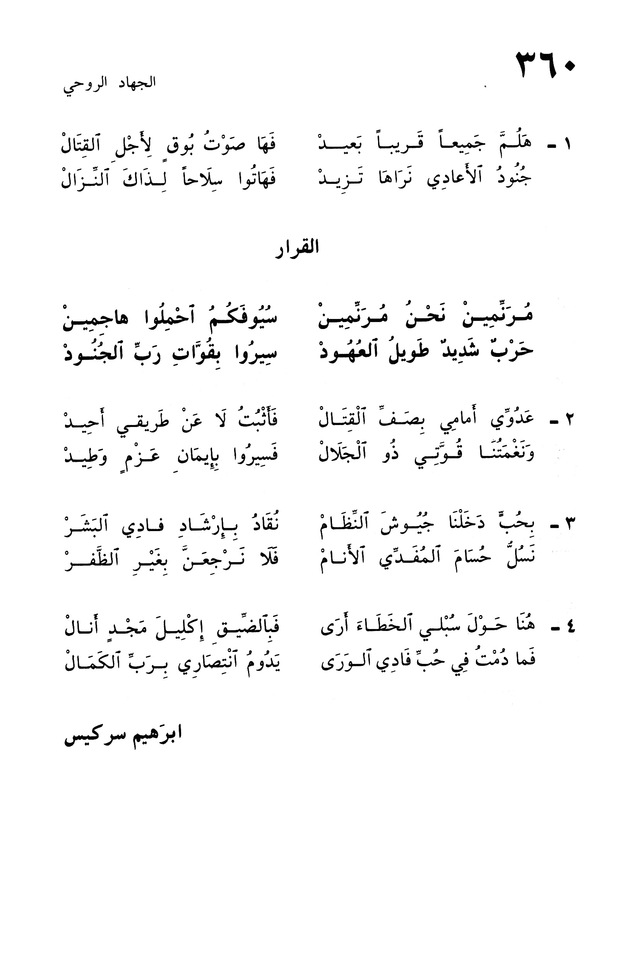 ٣٦٠
الجهاد الروحي
١ - هَلُـمَّ جَمِيعـاً قَـرِيبـاً بَعِيـدْ فَهَا صَوْتُ بُوقٍ لِأَجْلِ ٱلقِتَالْ
جُنُودُ ٱلأَعادِي نَرَاهَا تَـزِيـدْ فَهَاتُوا سِلَاحاً لِـذَاكَ ٱلنِّـزَالْ
القرار
مُـرَنِّمِيـنْ نَحْـنُ مُـرَنِّمِيـنْ سُيُوفَكُـمُ ٱحْمِلُوا هاجِمِيـنْ
حَرْبٌ شَدِيدٌ طَوِيلُ ٱلعُهُـودْ سِيرُوا بِقُوَّاتِ رَبِّ ٱلجُنُـودْ
٢ - عَدُوِّي أَمامِي بِصَـفِّ ٱلْقِتَـالْ فَأَثْبُتُ لَا عَنْ طَرِيقـي أَحِيـدْ
وَنَغْمَتُنَـا قُـوَّتِي ذُو ٱلْجَلَالْ فَسِيرُوا بِإِيمَانِ عَـزْمٍ وَطِيـدْ
٣ - بِحُبٍّ دَخَلْنَا جُيُـوشَ ٱلنِّظَـامْ نُقَادُ بِـإِرْشَـادِ فـادِي ٱلبَشَـرْ
نَسُلُّ حُسَامَ ٱلمُفَـدِّي ٱلأَنـامْ فَلَا نَـرْجِعَـنَّ بِغَيْـرِ ٱلظَّفَـرْ
٤ - هُنَا حَوْلَ سُبْلِي ٱلخَطَـاءَ أَرَى فَبِٱلضِّيـقِ إِكْلِيلَ مَجْـدٍ أَنـالْ
فَما دُمْتُ فِي حُبِّ فَادِي ٱلـوَرَى يَدُومُ ٱنْتِصَارِي بِـرَبِّ ٱلكَمَالْ
ابرَهيم سركيس